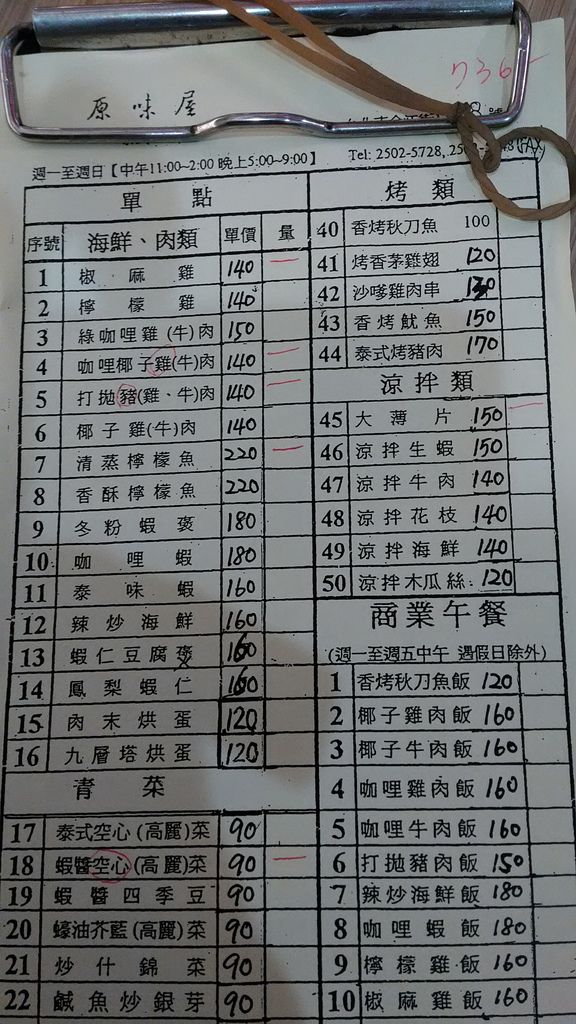 736-
原味屋
週一至週日【中午11:00~2:00 晚上5:00~9:00】
Tel: 2502-5728,
(FAX)
單點
序號 海鮮、肉類 單價 量
1 椒麻雞 140 一
2 檸檬雞 140
3 綠咖哩雞(牛)肉 150
4 咖哩椰子雞(牛)肉 140 一
5 打拋豬(雞、牛)肉 140 一
6 椰子雞(牛)肉 140
7 清蒸檸檬魚 220 一
8 香酥檸檬魚 220
9 冬粉蝦褒 180
10 咖哩蝦 180
11 泰味蝦 160
12 辣炒海鮮 160
13 蝦仁豆腐褒 160
14 鳳梨蝦仁 160
15 肉末烘蛋 120
16 九層塔烘蛋 120
青菜
17 泰式空心(高麗)菜 90
18 蝦醬空心(高麗)菜 90 一
19 蝦醬四季豆 90
20 蠔油芥藍(高麗)菜 90
21 炒什錦菜 90
22 鹹魚炒銀芽 90
烤類
40 香烤秋刀魚 100
41 烤香茅雞翅 120
42 沙嗲雞肉串 130
43 香烤魷魚 150
44 泰式烤豬肉 170
涼拌類
45 大薄片 150 一
46 涼拌生蝦 150
47 涼拌牛肉 140
48 涼拌花枝 140
49 涼拌海鮮 140
50 涼拌木瓜絲 120
商業午餐
(週一至週五中午 遇假日除外)
1 香烤秋刀魚飯 120
2 椰子雞肉飯 160
3 椰子牛肉飯 160
4 咖哩雞肉飯 160
5 咖哩牛肉飯 160
6 打拋豬肉飯 150
7 辣炒海鮮飯 180
8 咖哩蝦飯 180
9 檸檬雞飯 160
10 椒麻雞飯 160